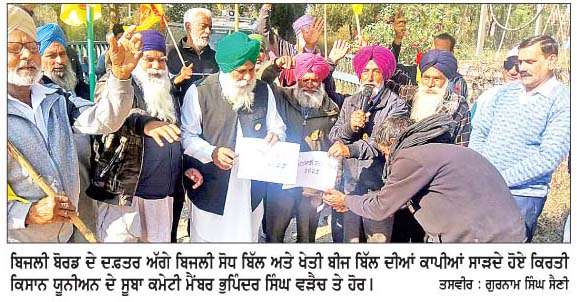 ਬਿਜਲੀ ਬੋਰਡ ਦੇ ਦਫ਼ਤਰ ਅੱਗੇ ਬਿਜਲੀ ਸੋਧ ਬਿੱਲ ਅਤੇ ਖੇਤੀ ਬੀਜ ਬਿੱਲ ਦੀਆਂ ਕਾਪੀਆਂ ਸਾੜਦੇ ਹੋਏ ਕਿਰਤੀ
ਕਿਸਾਨ ਯੂਨੀਅਨ ਦੇ ਸੂਬਾ ਕਮੇਟੀ ਮੈਂਬਰ ਭੁਪਿੰਦਰ ਸਿੰਘ ਵੜੈਚ ਤੇ ਹੋਰ। ਤਸਵੀਰ : ਗੁਰਨਾਮ ਸਿੰਘ ਸੈਣੀ